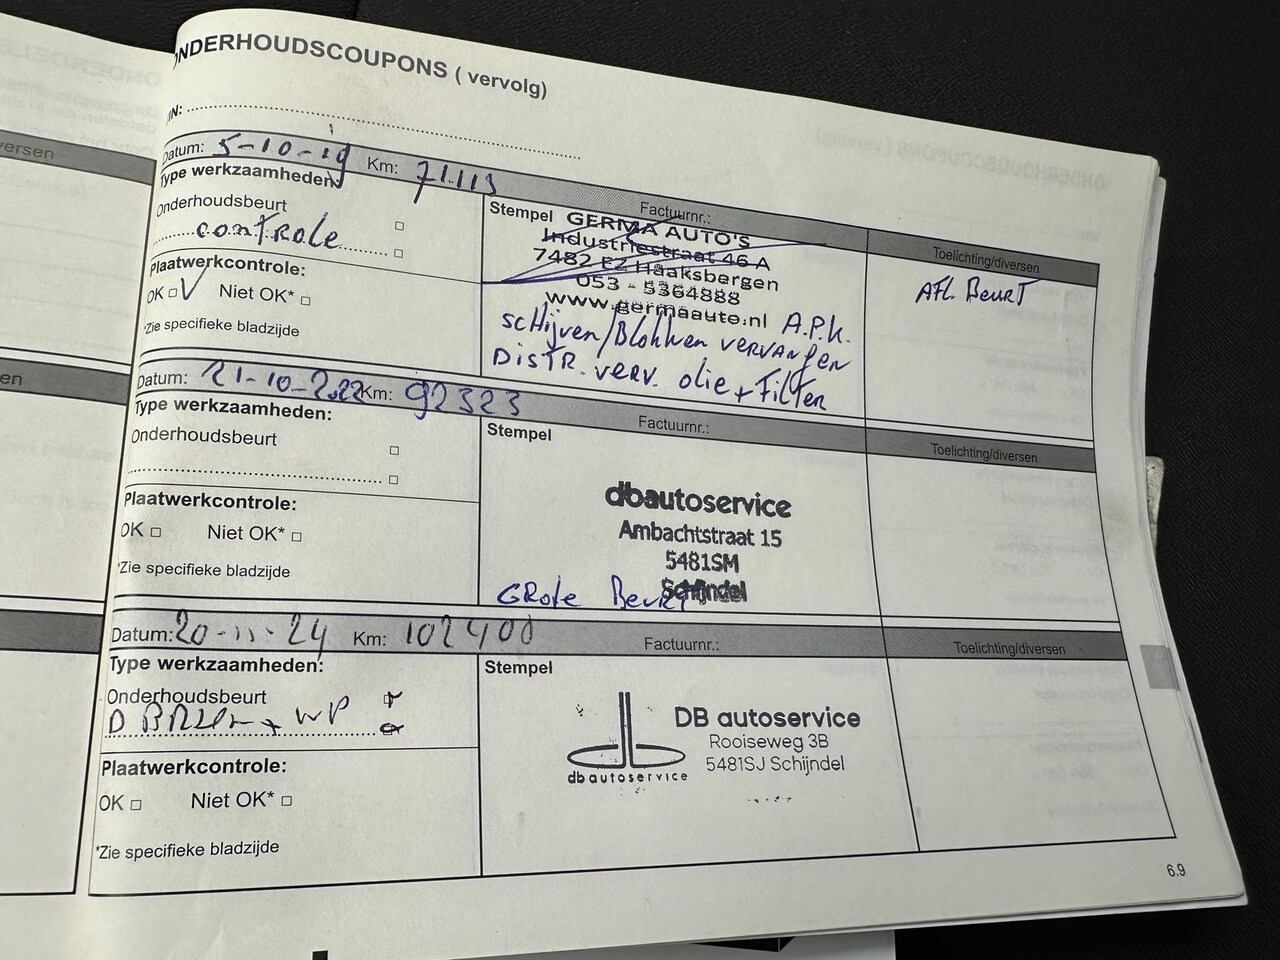 ONDERHOUDSCOUPONS ( vervolg)
IN:
Datum: 5-10-19 Km: 71.113
Factuurnr.:
Type werkzaamheden:
Onderhoudsbeurt
controle
Plaatwerkcontrole:
OK V Niet OK*
*Zie specifieke bladzijde
Stempel
GERMA AUTO'S
Industriestraat 46 A
7482 EZ Haaksbergen
053 - 5364888
www.germaauto.nl A.P.K.
schijven/Blokken vervangen
Distr. verv. olie + Filter
Toelichting/diversen
AFL. BeurT
Datum: 21-10-2022 Km: 92323
Factuurnr.:
Type werkzaamheden:
Onderhoudsbeurt
Plaatwerkcontrole:
OK Niet OK*
*Zie specifieke bladzijde
Stempel
dbautoservice
Ambachtstraat 15
5481SM
Schijndel
GRote BeurT
Toelichting/diversen
Datum: 20-11-24 Km: 102400
Factuurnr.:
Type werkzaamheden:
Onderhoudsbeurt
+ WP
Plaatwerkcontrole:
OK Niet OK*
*Zie specifieke bladzijde
Stempel
dbautoservice
DB autoservice
Rooiseweg 3B
5481SJ Schijndel
Toelichting/diversen
6.9
ersen
en